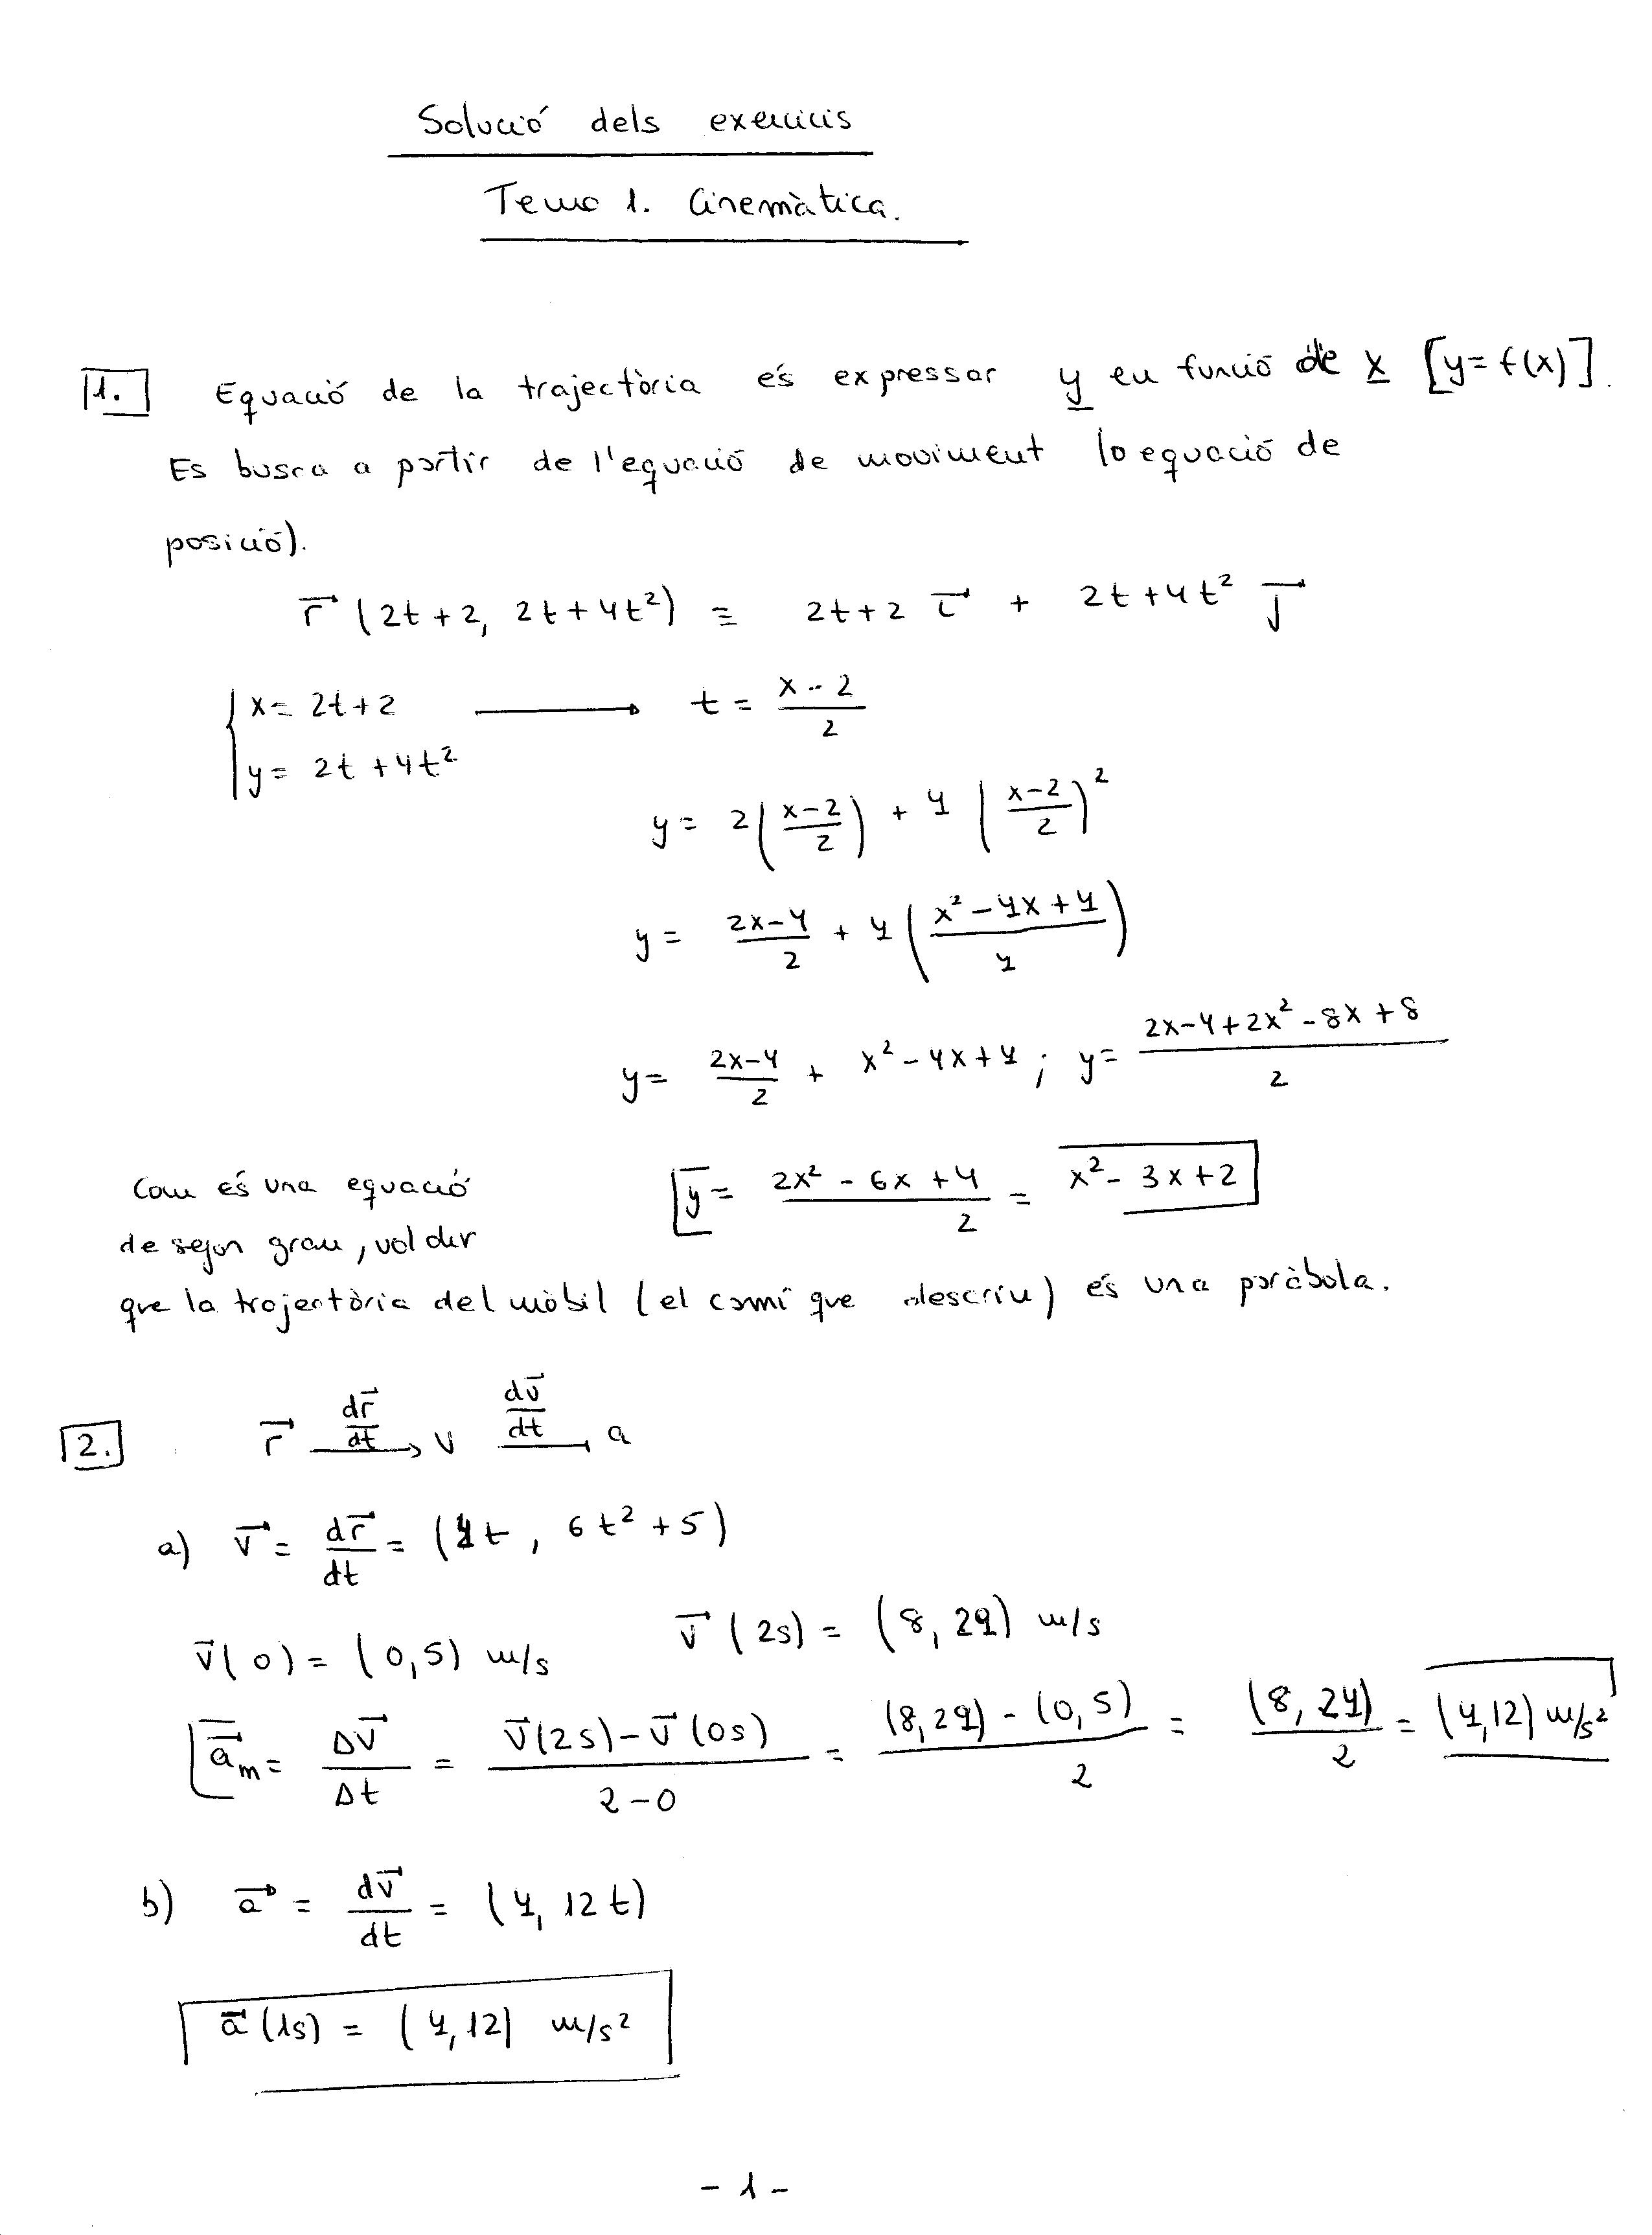 Solució dels exercicis
Tema 1. Cinemàtica.
1. Equació de la trajectòria és expressar y en funció de x [y=f(x)].
Es busca a partir de l'equació de moviment (o equació de
posició).
r⃗ (2t+2, 2t+4t²) = 2t+2 i⃗ + 2t+4t² j⃗
{ x= 2t+2 ⟶ t = (x-2)/2
y= 2t+4t²
y= 2((x-2)/2) + 4((x-2)/2)²
y= (2x-4)/2 + 4((x²-4x+4)/4)
y= (2x-4)/2 + x²-4x+4 ; y= (2x-4+2x²-8x+8)/2
y= (2x²-6x+4)/2 = x²-3x+2
Com és una equació
de segon grau, vol dir
que la trajectòria del mòbil (el camí que descriu) és una paràbola.
2. r⃗ —dr⃗/dt→ v —dv⃗/dt→ a
a) v⃗ = dr⃗/dt = (4t, 6t²+5)
v⃗(0) = (0,5) m/s v⃗(2s) = (8,29) m/s
a⃗m = Δv⃗/Δt = (v⃗(2s)-v⃗(0s))/(2-0) = ((8,29)-(0,5))/2 = (8,24)/2 = (4,12) m/s²
b) a⃗ = dv⃗/dt = (4, 12t)
a⃗(1s) = (4,12) m/s²
- 1 -